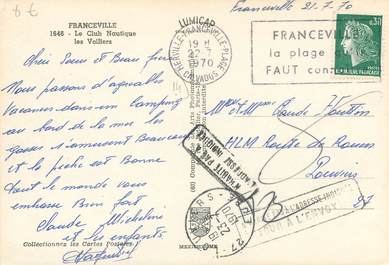 FRANCEVILLE
1646 - Le Club Nautique
les Voiliers
Franceville 21-7.70
LUMICAP
MERVILLE-FRANCEVILLE-PLAGE
19 H
22-7
1970
CALVADOS
FRANCEVILLE
la plage
FAUT
0.30
Chère Soeur et Beau frère
Nous passons d'agréables
Vacances dans un Camping
au bord de la mer les
gosses s'amusent Beaucoup
et la pêche est Bonne
tout le monde vous
embrasse Bien fort
Claude Micheline
et les enfants
HLM Route de Rouen
Louviers
27
N'HABITE PAS A
L'ADRESSE INDIQUEE
RETOUR A L'ENVOYEUR
Collectionnez les Cartes Postales
MEXICHROME